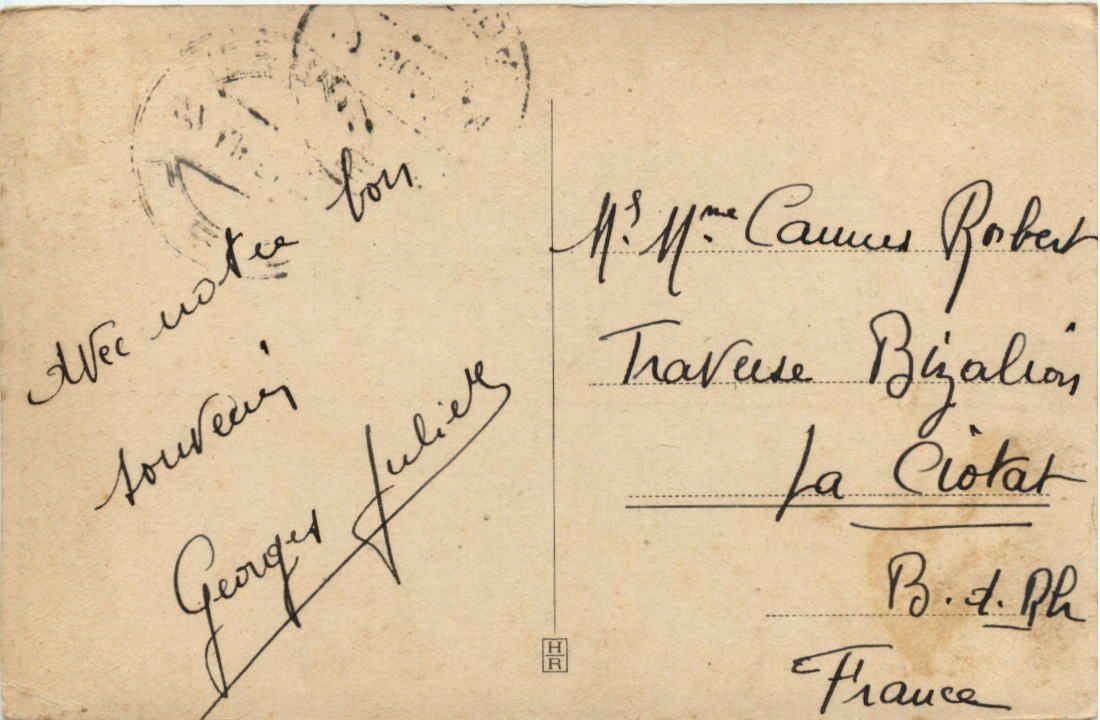 Avec notre bon
souvenir
Georges Juliette
Mr. Mme Camus Robert
Traverse Bizalion
La Ciotat
B. d. Rh
France
H
R